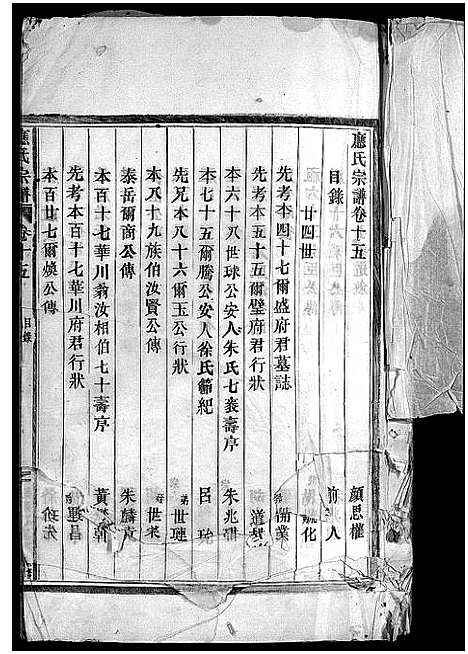 應氏宗譜卷十五
目錄
廿四世
先考本四十七爾盛府君墓誌
先考本五十五爾璧府君行狀
本六十八世球公安人朱氏七袠壽序
本七十五爾騰公安人徐氏範紀
先兄本八十六爾玉公行狀
本八十九族伯汝賢公傳
泰岳爾商公傳
本百十七華川翁汝相伯七十壽序
先考本百十七華川府君行狀
本百廿七爾煥公傳
顏思權
人
化
業
道
朱兆
呂
世璉
世來
朱麟
黃
昌
應氏宗譜
卷十五
目錄